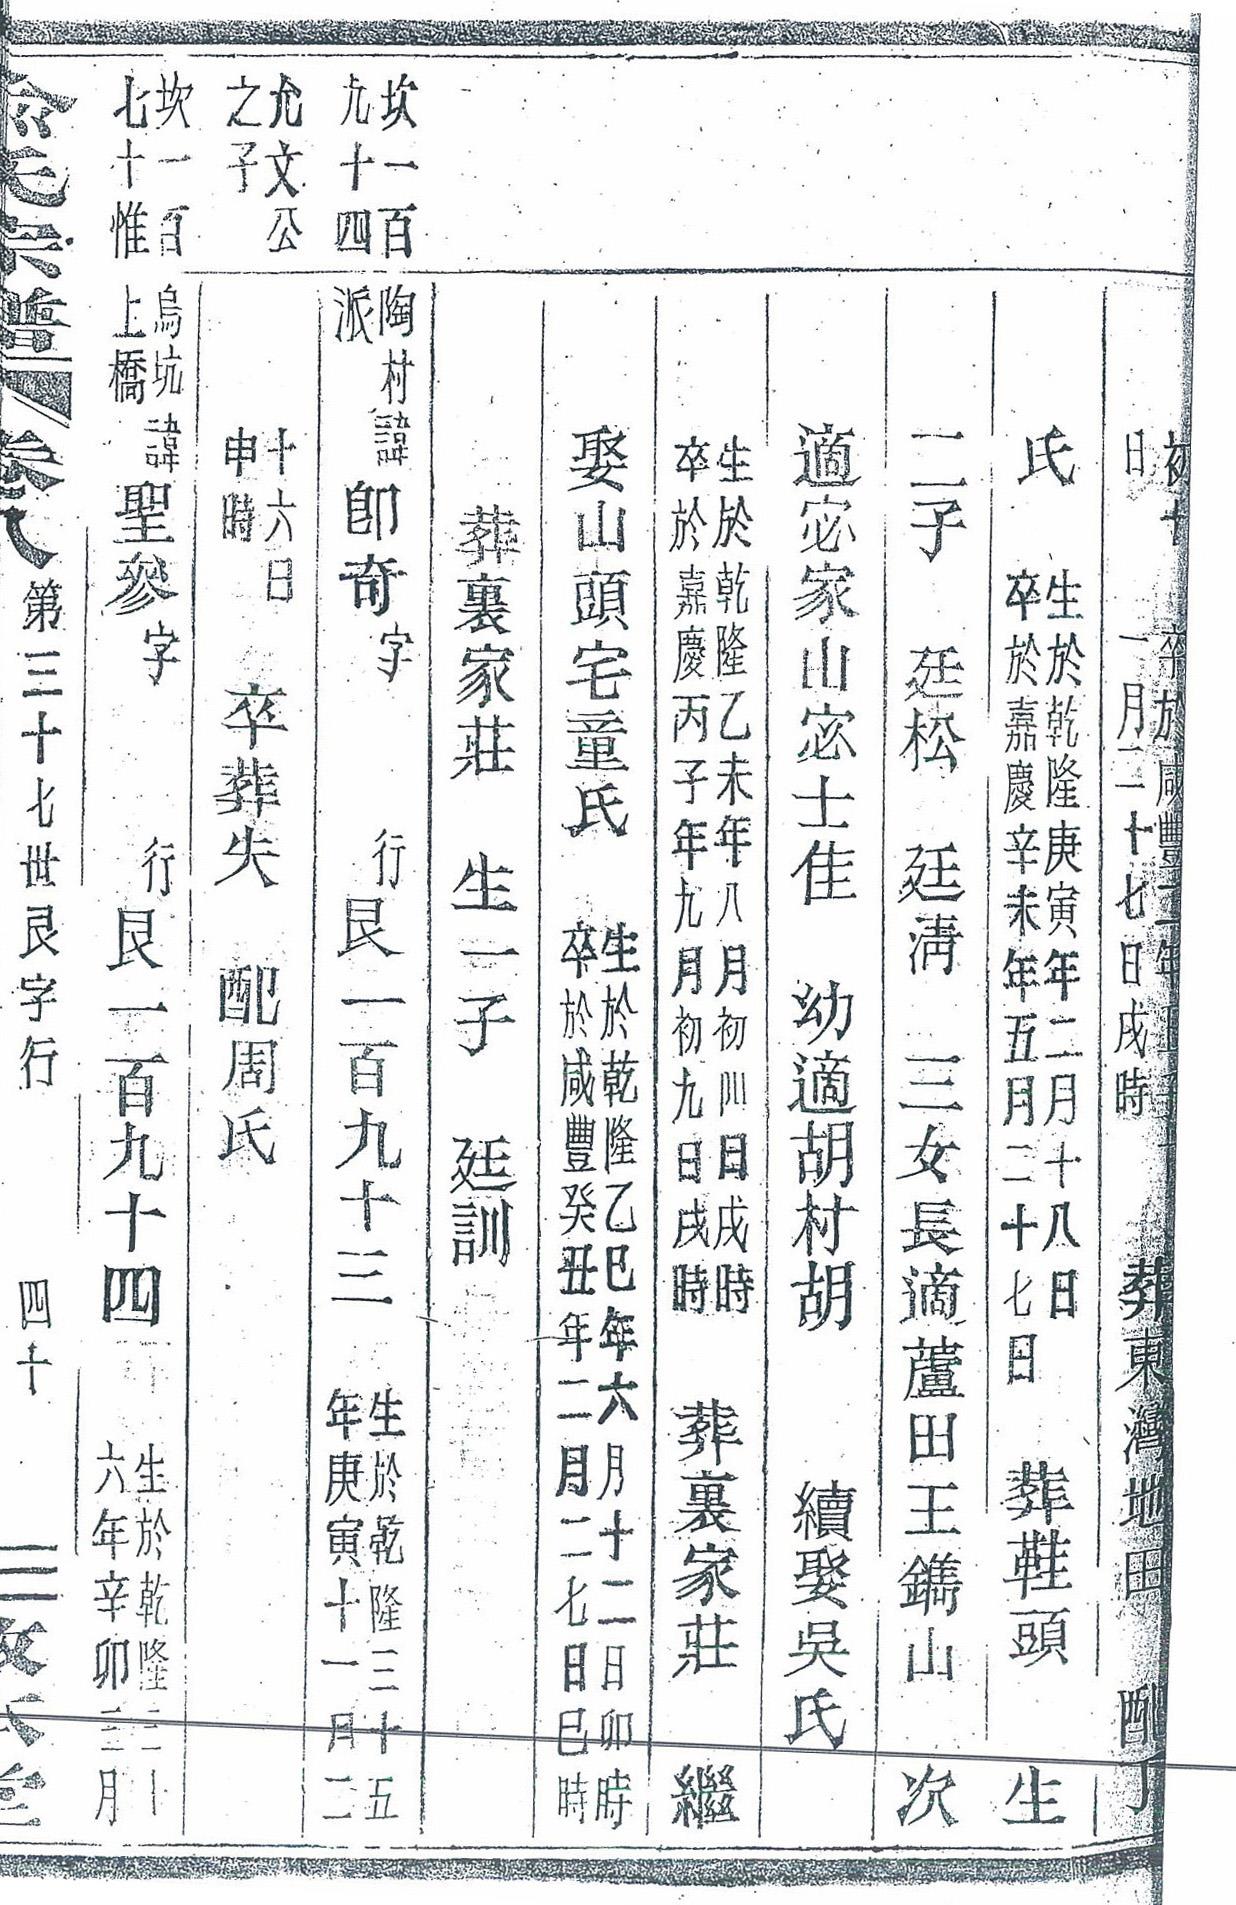 初十
日
卒於咸豐
一月二十七日戌時
葬東灣地田
配丁
氏
生於乾隆庚寅年二月十八日
卒於嘉慶辛未年五月二十七日
葬鞋頭
生
二子 廷松 廷淸 三女長適蘆田王鐫山 次
適宓家山宓士佳 幼適胡村胡 續娶吳氏
生於乾隆乙未年八月初四日戌時
卒於嘉慶丙子年九月初九日戌時
葬裏家莊 繼
娶山頭宅童氏
生於乾隆乙巳年六月十二日卯時
卒於咸豐癸丑年二月二七日巳時
葬裏家莊 生一子 廷訓
坎一百
九十四
陶村
派
諱卽奇字 行艮一百九十三
生於乾隆三十五
年庚寅十一月二
允文公
之子
十六日
申時
卒葬失 配周氏
坎一百
七十惟
烏坑
上橋
諱聖參字 行艮一百九十四
生於乾隆三十
六年辛卯三月
俞氏宗譜 卷八 第三十七世艮字行 四十